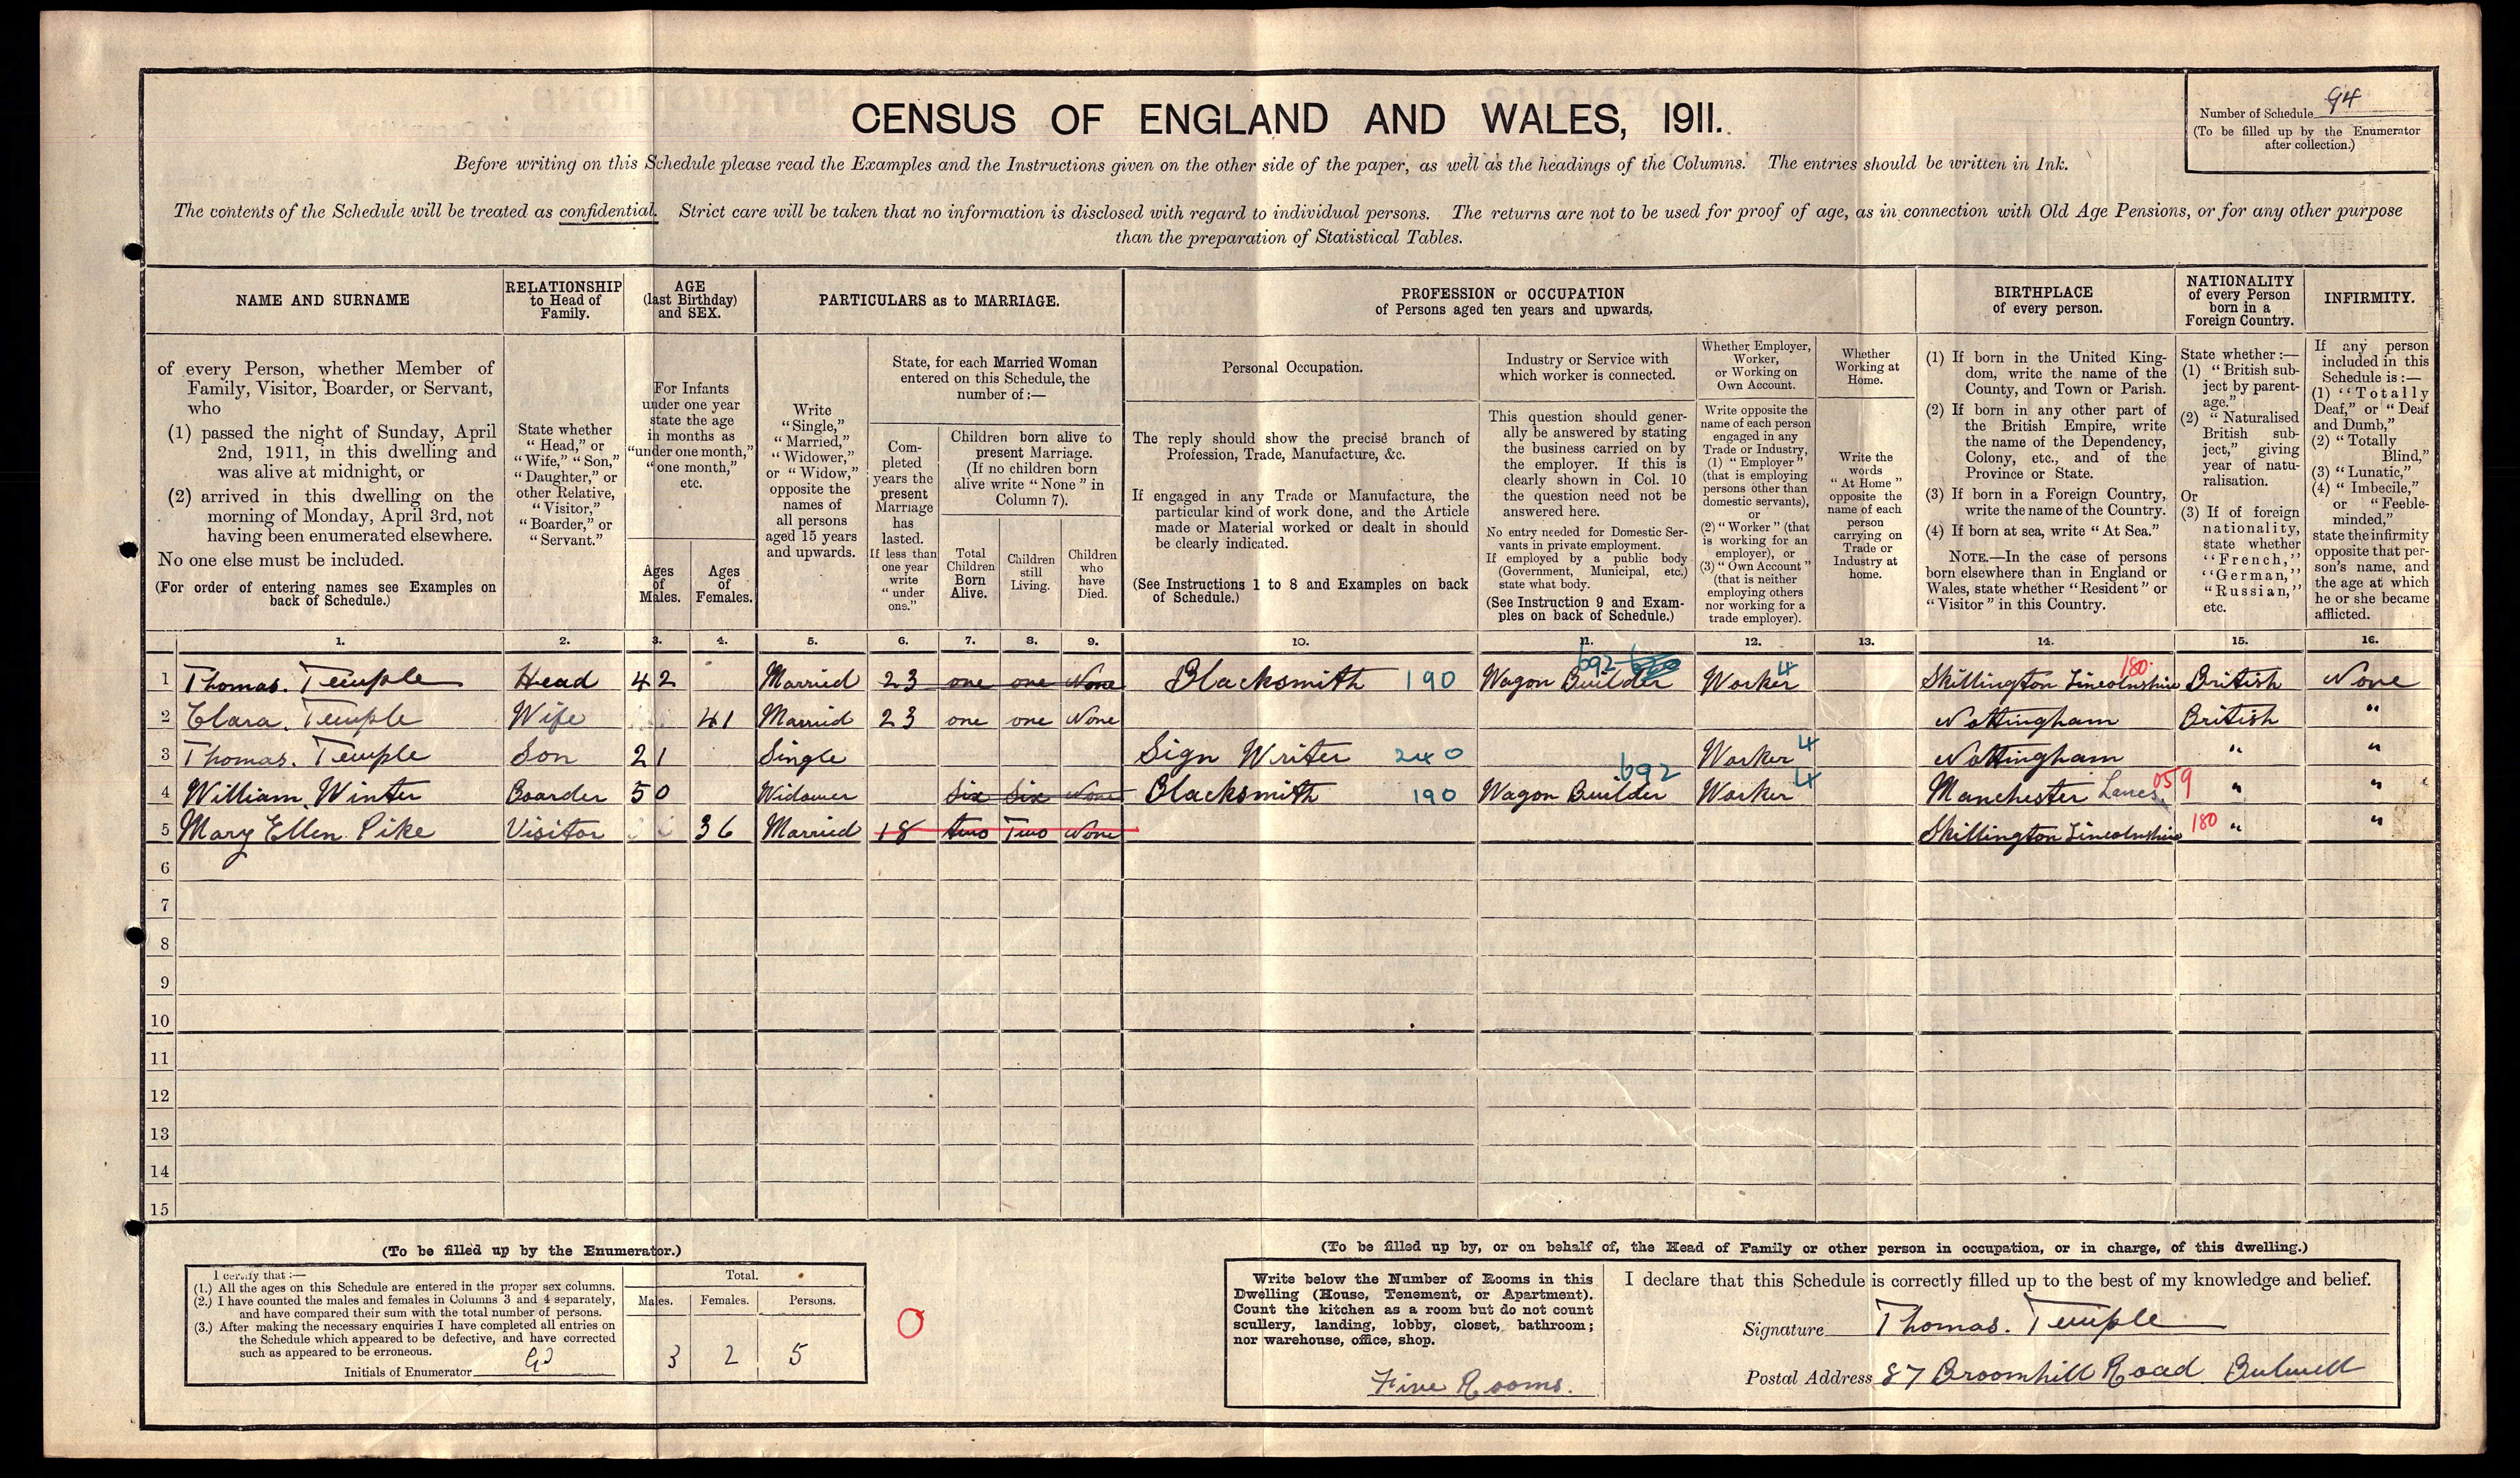 CENSUS OF ENGLAND AND WALES, 1911.
Number of Schedule 94
(To be filled up by the Enumerator
after collection.)
Before writing on this Schedule please read the Examples and the Instructions given on the other side of the paper, as well as the headings of the Columns. The entries should be written in Ink.
The contents of the Schedule will be treated as confidential. Strict care will be taken that no information is disclosed with regard to individual persons. The returns are not to be used for proof of age, as in connection with Old Age Pensions, or for any other purpose
than the preparation of Statistical Tables.
NAME AND SURNAME
of every Person, whether Member of
Family, Visitor, Boarder, or Servant,
who
(1) passed the night of Sunday, April
2nd, 1911, in this dwelling and
was alive at midnight, or
(2) arrived in this dwelling on the
morning of Monday, April 3rd, not
having been enumerated elsewhere.
No one else must be included.
(For order of entering names see Examples on
back of Schedule.)
RELATIONSHIP
to Head of
Family.
State whether
"Head," or
"Wife," "Son,"
"Daughter," or
other Relative,
"Visitor,"
"Boarder," or
"Servant."
AGE
(last Birthday)
and SEX.
For Infants
under one year
state the age
in months as
"under one month,"
"one month,"
etc.
Ages
of
Males.
Ages
of
Females.
PARTICULARS as to MARRIAGE.
Write
"Single,"
"Married,"
"Widower,"
or "Widow,"
opposite the
names of
all persons
aged 15 years
and upwards.
State, for each Married Woman
entered on this Schedule, the
number of:—
Com-
pleted
years the
present
Marriage
has
lasted.
If less than
one year
write
"under
one."
Children born alive to
present Marriage.
(If no children born
alive write "None" in
Column 7).
Total
Children
Born
Alive.
Children
still
Living.
Children
who
have
Died.
PROFESSION or OCCUPATION
of Persons aged ten years and upwards.
Personal Occupation.
The reply should show the precise branch of
Profession, Trade, Manufacture, &c.
If engaged in any Trade or Manufacture, the
particular kind of work done, and the Article
made or Material worked or dealt in should
be clearly indicated.
(See Instructions 1 to 8 and Examples on back
of Schedule.)
Industry or Service with
which worker is connected.
This question should gener-
ally be answered by stating
the business carried on by
the employer. If this is
clearly shown in Col. 10
the question need not be
answered here.
No entry needed for Domestic Ser-
vants in private employment.
If employed by a public body
(Government, Municipal, etc.)
state what body.
(See Instruction 9 and Exam-
ples on back of Schedule.)
Whether Employer,
Worker,
or Working on
Own Account.
Write opposite the
name of each person
engaged in any
Trade or Industry,
(1) "Employer"
(that is employing
persons other than
domestic servants),
or
(2) "Worker" (that
is working for an
employer), or
(3) "Own Account"
(that is neither
employing others
nor working for a
trade employer).
Whether
Working at
Home.
Write the
words
"At Home"
opposite the
name of each
person
carrying on
Trade or
Industry at
home.
BIRTHPLACE
of every person.
(1) If born in the United King-
dom, write the name of the
County, and Town or Parish.
(2) If born in any other part of
the British Empire, write
the name of the Dependency,
Colony, etc., and of the
Province or State.
(3) If born in a Foreign Country,
write the name of the Country.
(4) If born at sea, write "At Sea."
NOTE.—In the case of persons
born elsewhere than in England or
Wales, state whether "Resident" or
"Visitor" in this Country.
NATIONALITY
of every Person
born in a
Foreign Country.
State whether:—
(1) "British sub-
ject by parent-
age."
(2) "Naturalised
British sub-
ject," giving
year of natu-
ralisation.
Or
(3) If of foreign
nationality,
state whether
"French,"
"German,"
"Russian,"
etc.
INFIRMITY.
If any person
included in this
Schedule is:—
(1) "Totally
Deaf," or "Deaf
and Dumb,"
(2) "Totally
Blind,"
(3) "Lunatic,"
(4) "Imbecile,"
or "Feeble-
minded,"
state the infirmity
opposite that per-
son's name, and
the age at which
he or she became
afflicted.
1. 2. 3. 4. 5. 6. 7. 8. 9. 10. 11. 12. 13. 14. 15. 16.
1 Thomas. Temple Head 42 Married 23 one one None Blacksmith 190 Wagon Builder 692 Worker 4 Skillington Lincolnshire 180 British None
2 Clara. Temple Wife 41 Married 23 one one None Nottingham British "
3 Thomas. Temple Son 21 Single Sign Writer 240 Worker 4 Nottingham " "
4 William Winter Boarder 50 Widower Six Six None Blacksmith 190 Wagon Builder 692 Worker 4 Manchester Lancs. 059 " "
5 Mary Ellen Pike Visitor 36 Married 18 two Two None Skillington Lincolnshire 180 " "
6
7
8
9
10
11
12
13
14
15
(To be filled up by the Enumerator.)
I certify that:—
(1.) All the ages on this Schedule are entered in the proper sex columns.
(2.) I have counted the males and females in Columns 3 and 4 separately,
and have compared their sum with the total number of persons.
(3.) After making the necessary enquiries I have completed all entries on
the Schedule which appeared to be defective, and have corrected
such as appeared to be erroneous.
Initials of Enumerator
Total.
Males. Females. Persons.
3 2 5
0
(To be filled up by, or on behalf of, the Head of Family or other person in occupation, or in charge, of this dwelling.)
Write below the Number of Rooms in this
Dwelling (House, Tenement, or Apartment).
Count the kitchen as a room but do not count
scullery, landing, lobby, closet, bathroom;
nor warehouse, office, shop.
Five Rooms.
I declare that this Schedule is correctly filled up to the best of my knowledge and belief.
Signature Thomas. Temple
Postal Address 87 Broomhill Road. Bulwell